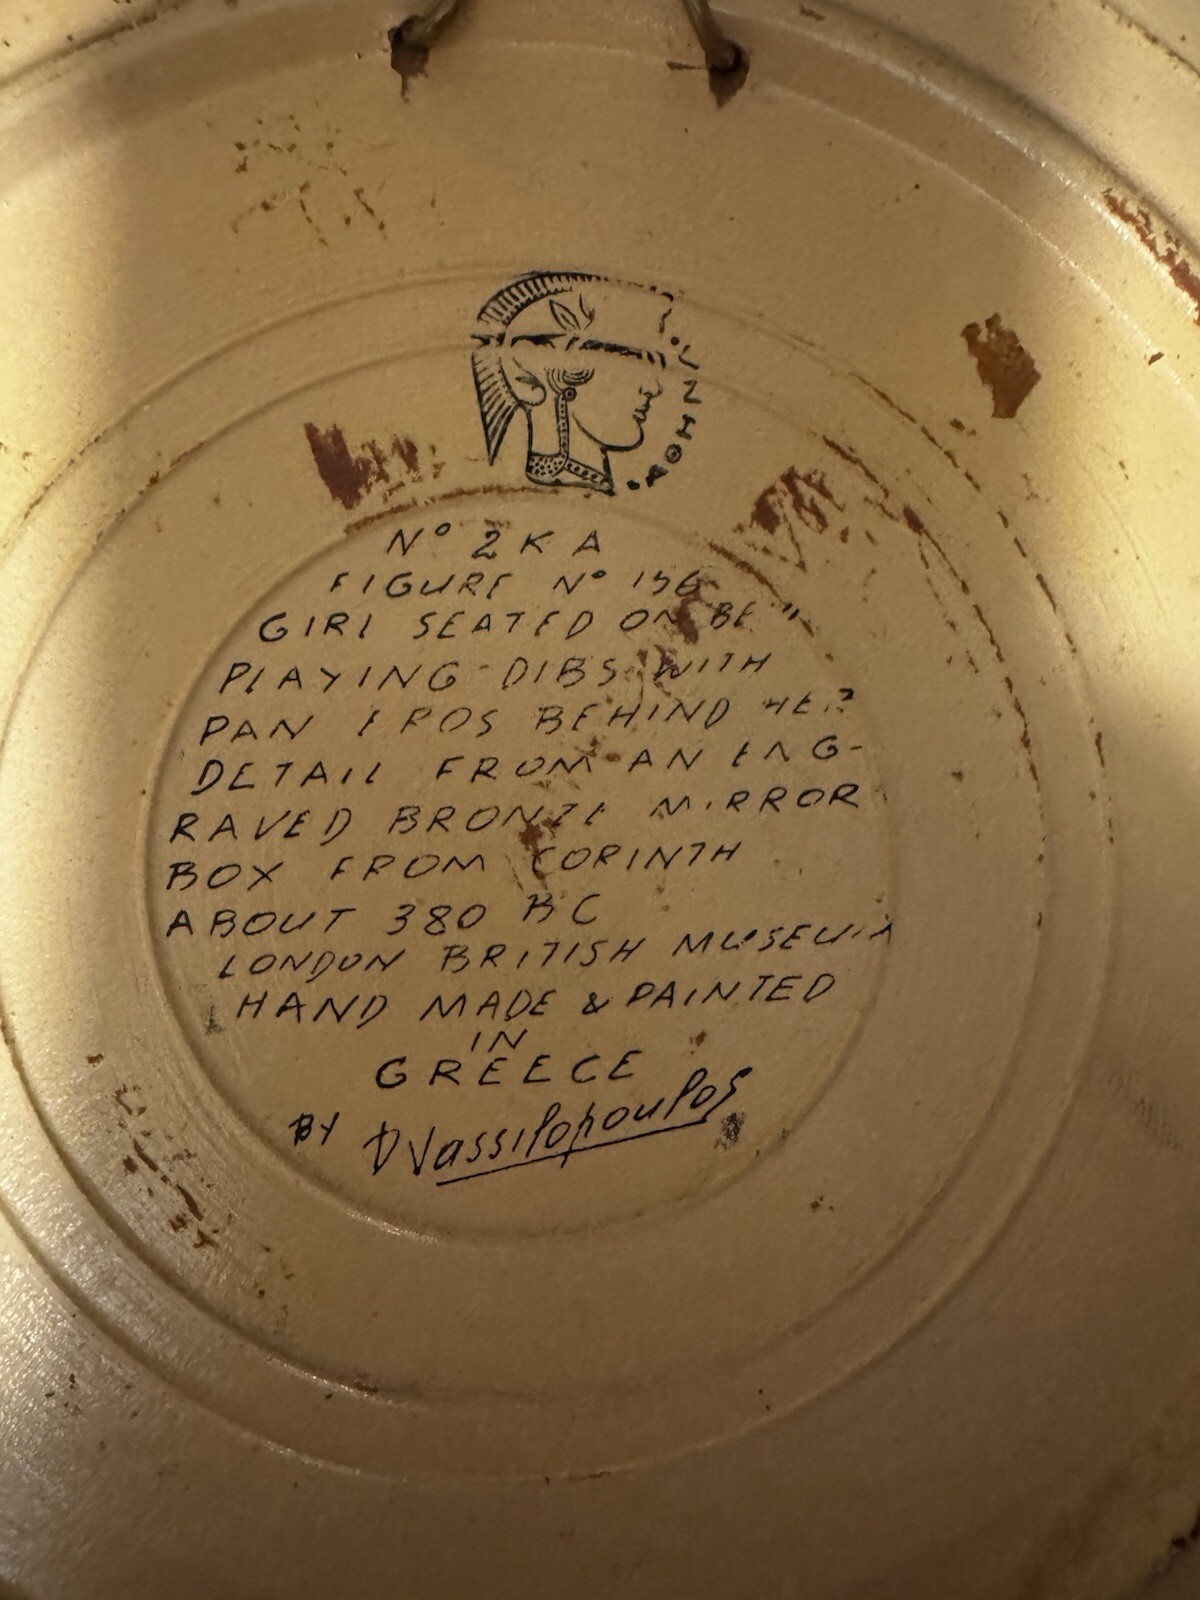 ΑΘΗΝΑΙ
Nº 2 K A
FIGURE Nº 156
GIRL SEATED ON
PLAYING DIBS WITH
PAN EROS BEHIND HER
DETAIL FROM AN ENG-
RAVED BRONZE MIRROR
BOX FROM CORINTH
ABOUT 380 BC
LONDON BRITISH MUSEUM
HAND MADE & PAINTED
IN
GREECE
BY DVassilopoulos